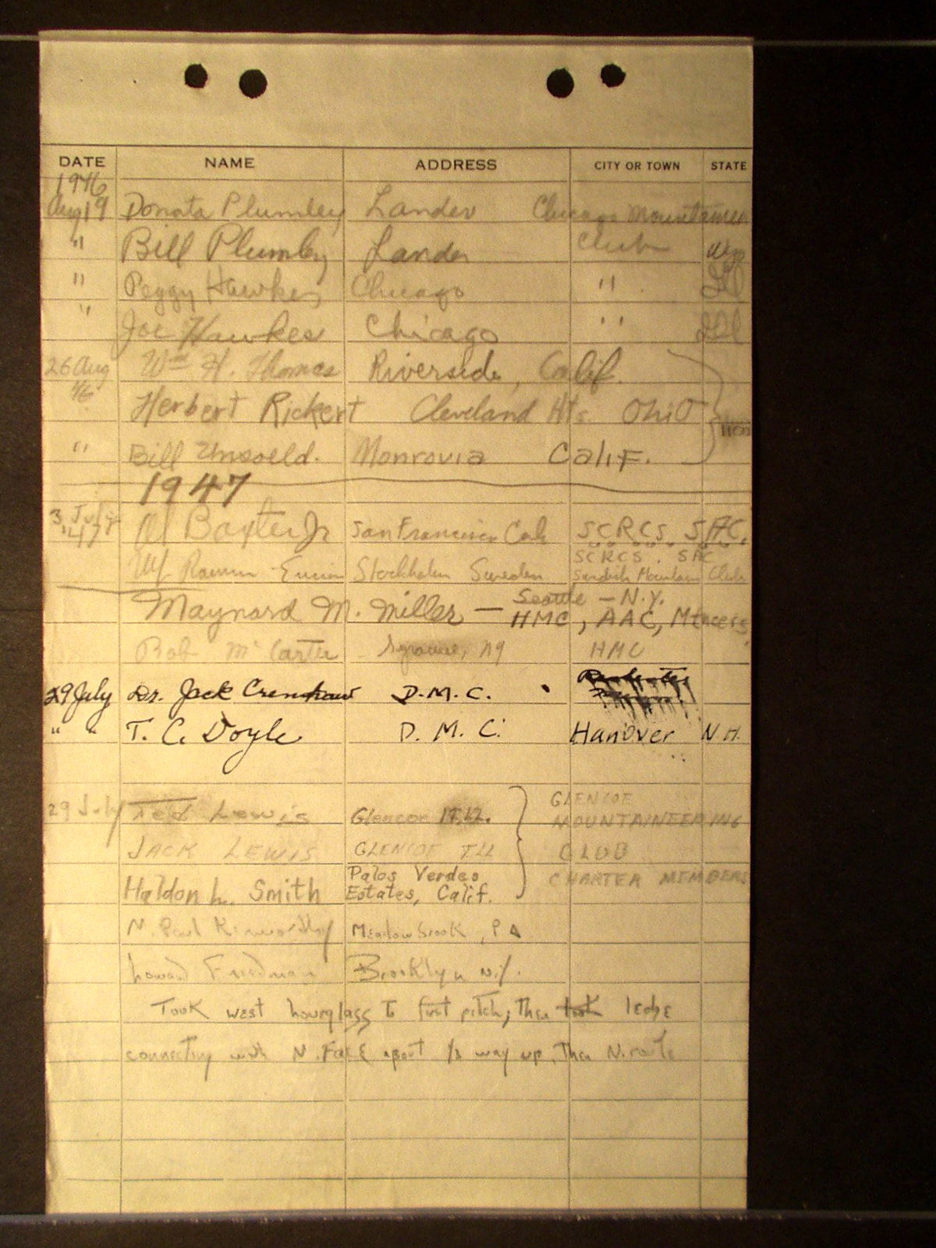 DATE NAME ADDRESS CITY OR TOWN STATE
1946
Aug 19 Donata Plumley Lander Chicago Mountaineer
" Bill Plumley Lander Club Wyo
" Peggy Hawkes Chicago " Ill
" Joe Hawkes Chicago " Ill
26 Aug Wm H. Thomas Riverside, Calif.
46 Herbert Rickert Cleveland Hts. Ohio
" Bill Unsoeld. Monrovia Calif.
1947
3 July 47 Al Baxter Jr San Francisco Cal S.C.R.C.S. SAC.
Ulf Stockholm Sweden SCRCS. SAC
Swedish Mountain Club
Maynard M. Miller — Seattle — N.Y.
HMC, AAC, Mtneers
Bob McCarter Syracuse, NY HMC
29 July Dr. Jack Crenshaw D.M.C.
" " T. C. Doyle D. M. C. Hanover N.H.
29 July Ted Lewis Glencoe ILL. GLENCOE
MOUNTAINEERING
JACK LEWIS GLENCOE ILL CLUB
Haldon L. Smith Palos Verdes
Estates, Calif. CHARTER MEMBERS
N. Paul Kenworthy Meadowbrook, PA
Howard Friedman Brooklyn N.Y.
Took west hourglass to first pitch, then took ledge
connecting with N. Face about 1/2 way up, then N. route